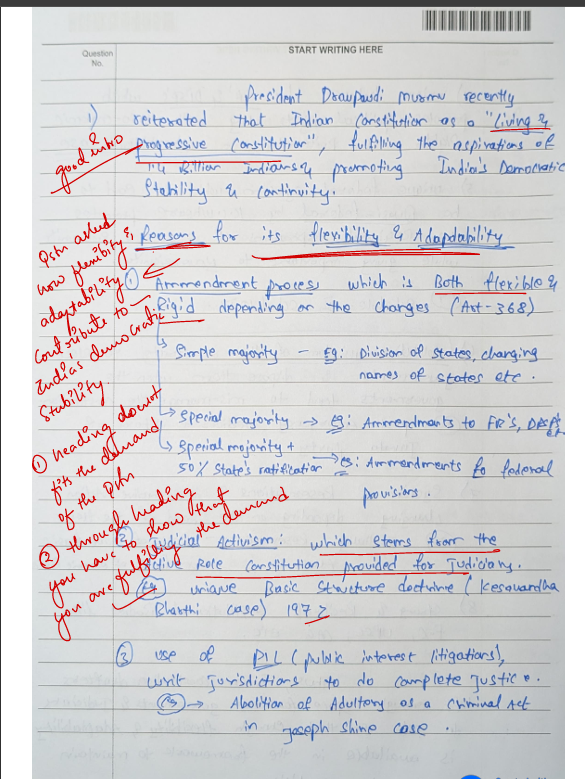 Question No.
START WRITING HERE
1) President Draupadi Murmu recently
reiterated that Indian Constitution as a "Living &
Progressive Constitution", fulfilling the aspirations of
1.4 Billion Indians & promoting India's Democratic
Stability & Continuity.
good intro
Reasons for its flexibility & Adapdability
Qstn asked how flexibility & adaptability contribute to India's democratic Stability
① Ammendment process which is Both flexible &
Rigid depending on the changes (Art-368)
Simple majority - Eg: Division of states, changing
names of states etc.
Special majority → eg: Ammendments to FR's, DPSP's etc
Special majority +
50% State's ratification → eg: Ammendments to federal
provisions.
① heading does not fits the demand of the Qstn
② through heading you have to show that you are fulfilling the demand
② Judicial Activism: which stems from the
Active Role Constitution provided for Judiciary.
Eg unique Basic Structure doctrine (Kesavandha
Bharthi case) 197?
③ use of PIL (public interest litigations),
writ Jurisdictions to do complete Justice.
Eg → Abolition of Adultery as a Criminal Act
in Joseph Shine case.